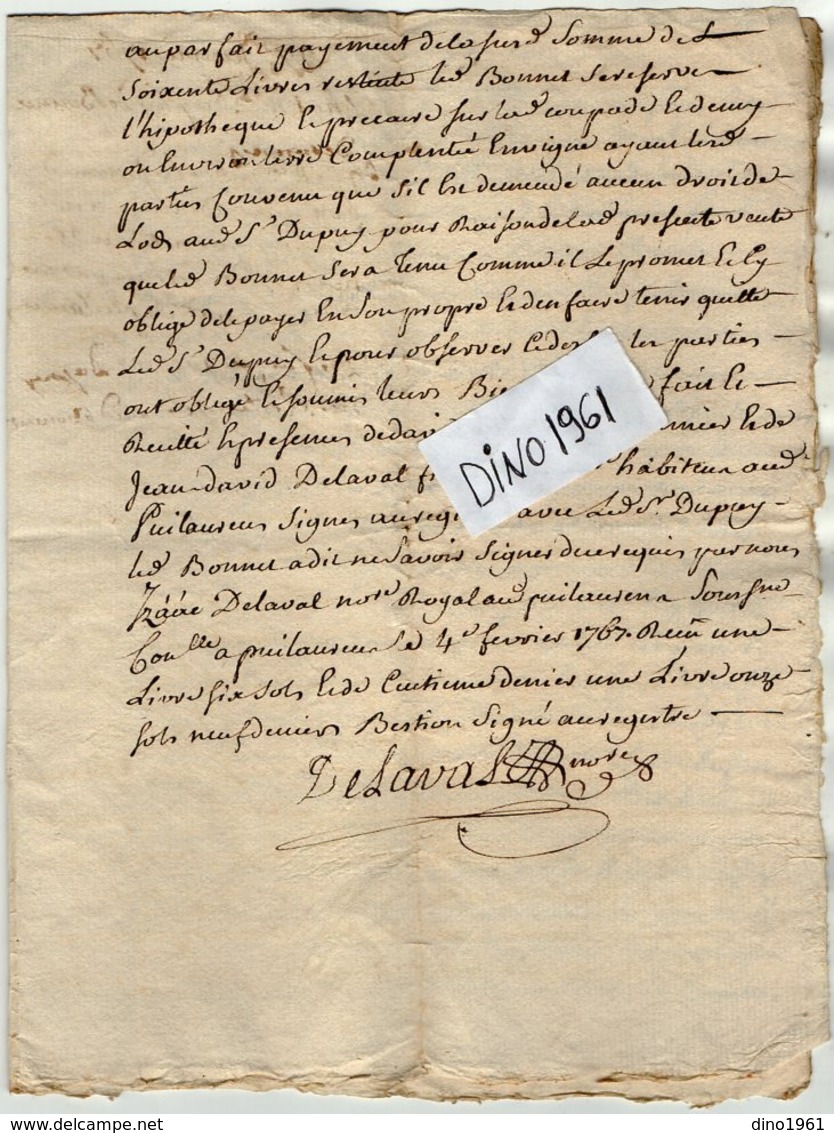 au parfait payement de la susd somme de
soixente Livres restente led Bonnet se reserve
l'hipotheque le precaire sur lad coupade et demy
ou Environ terre Complentée En vigne ayant lesd
parties Convenu que sil Est demendé aucun droit de
Lods aud Sr Dupuy pour Raison de lad presente vente
que led Bonnet sera tenu Comme il le promet et sy
oblige de le payer En son propre et den faire tenir quitte
Led Sr Dupuy et pour observer ce des les parties
ont obligé et soumis leurs Bie fait et
Recitté En presence de david mier et de
Jean david Delaval f habiteur aud
Puilaurens Signes au regi avec Led Sr Dupuy
led Bonnet a dit ne savoir signer de ce requis par nous
Izaac Delaval nore Royal aud puilaurens Soussne
Conlle a puilaurens le 4e fevrier 1767. Reçu une
Livre six sols et de Centieme denier une Livre onze
sols neuf deniers Bestion Signé au registre
DeLaval nore
DINO.1961
dino1961